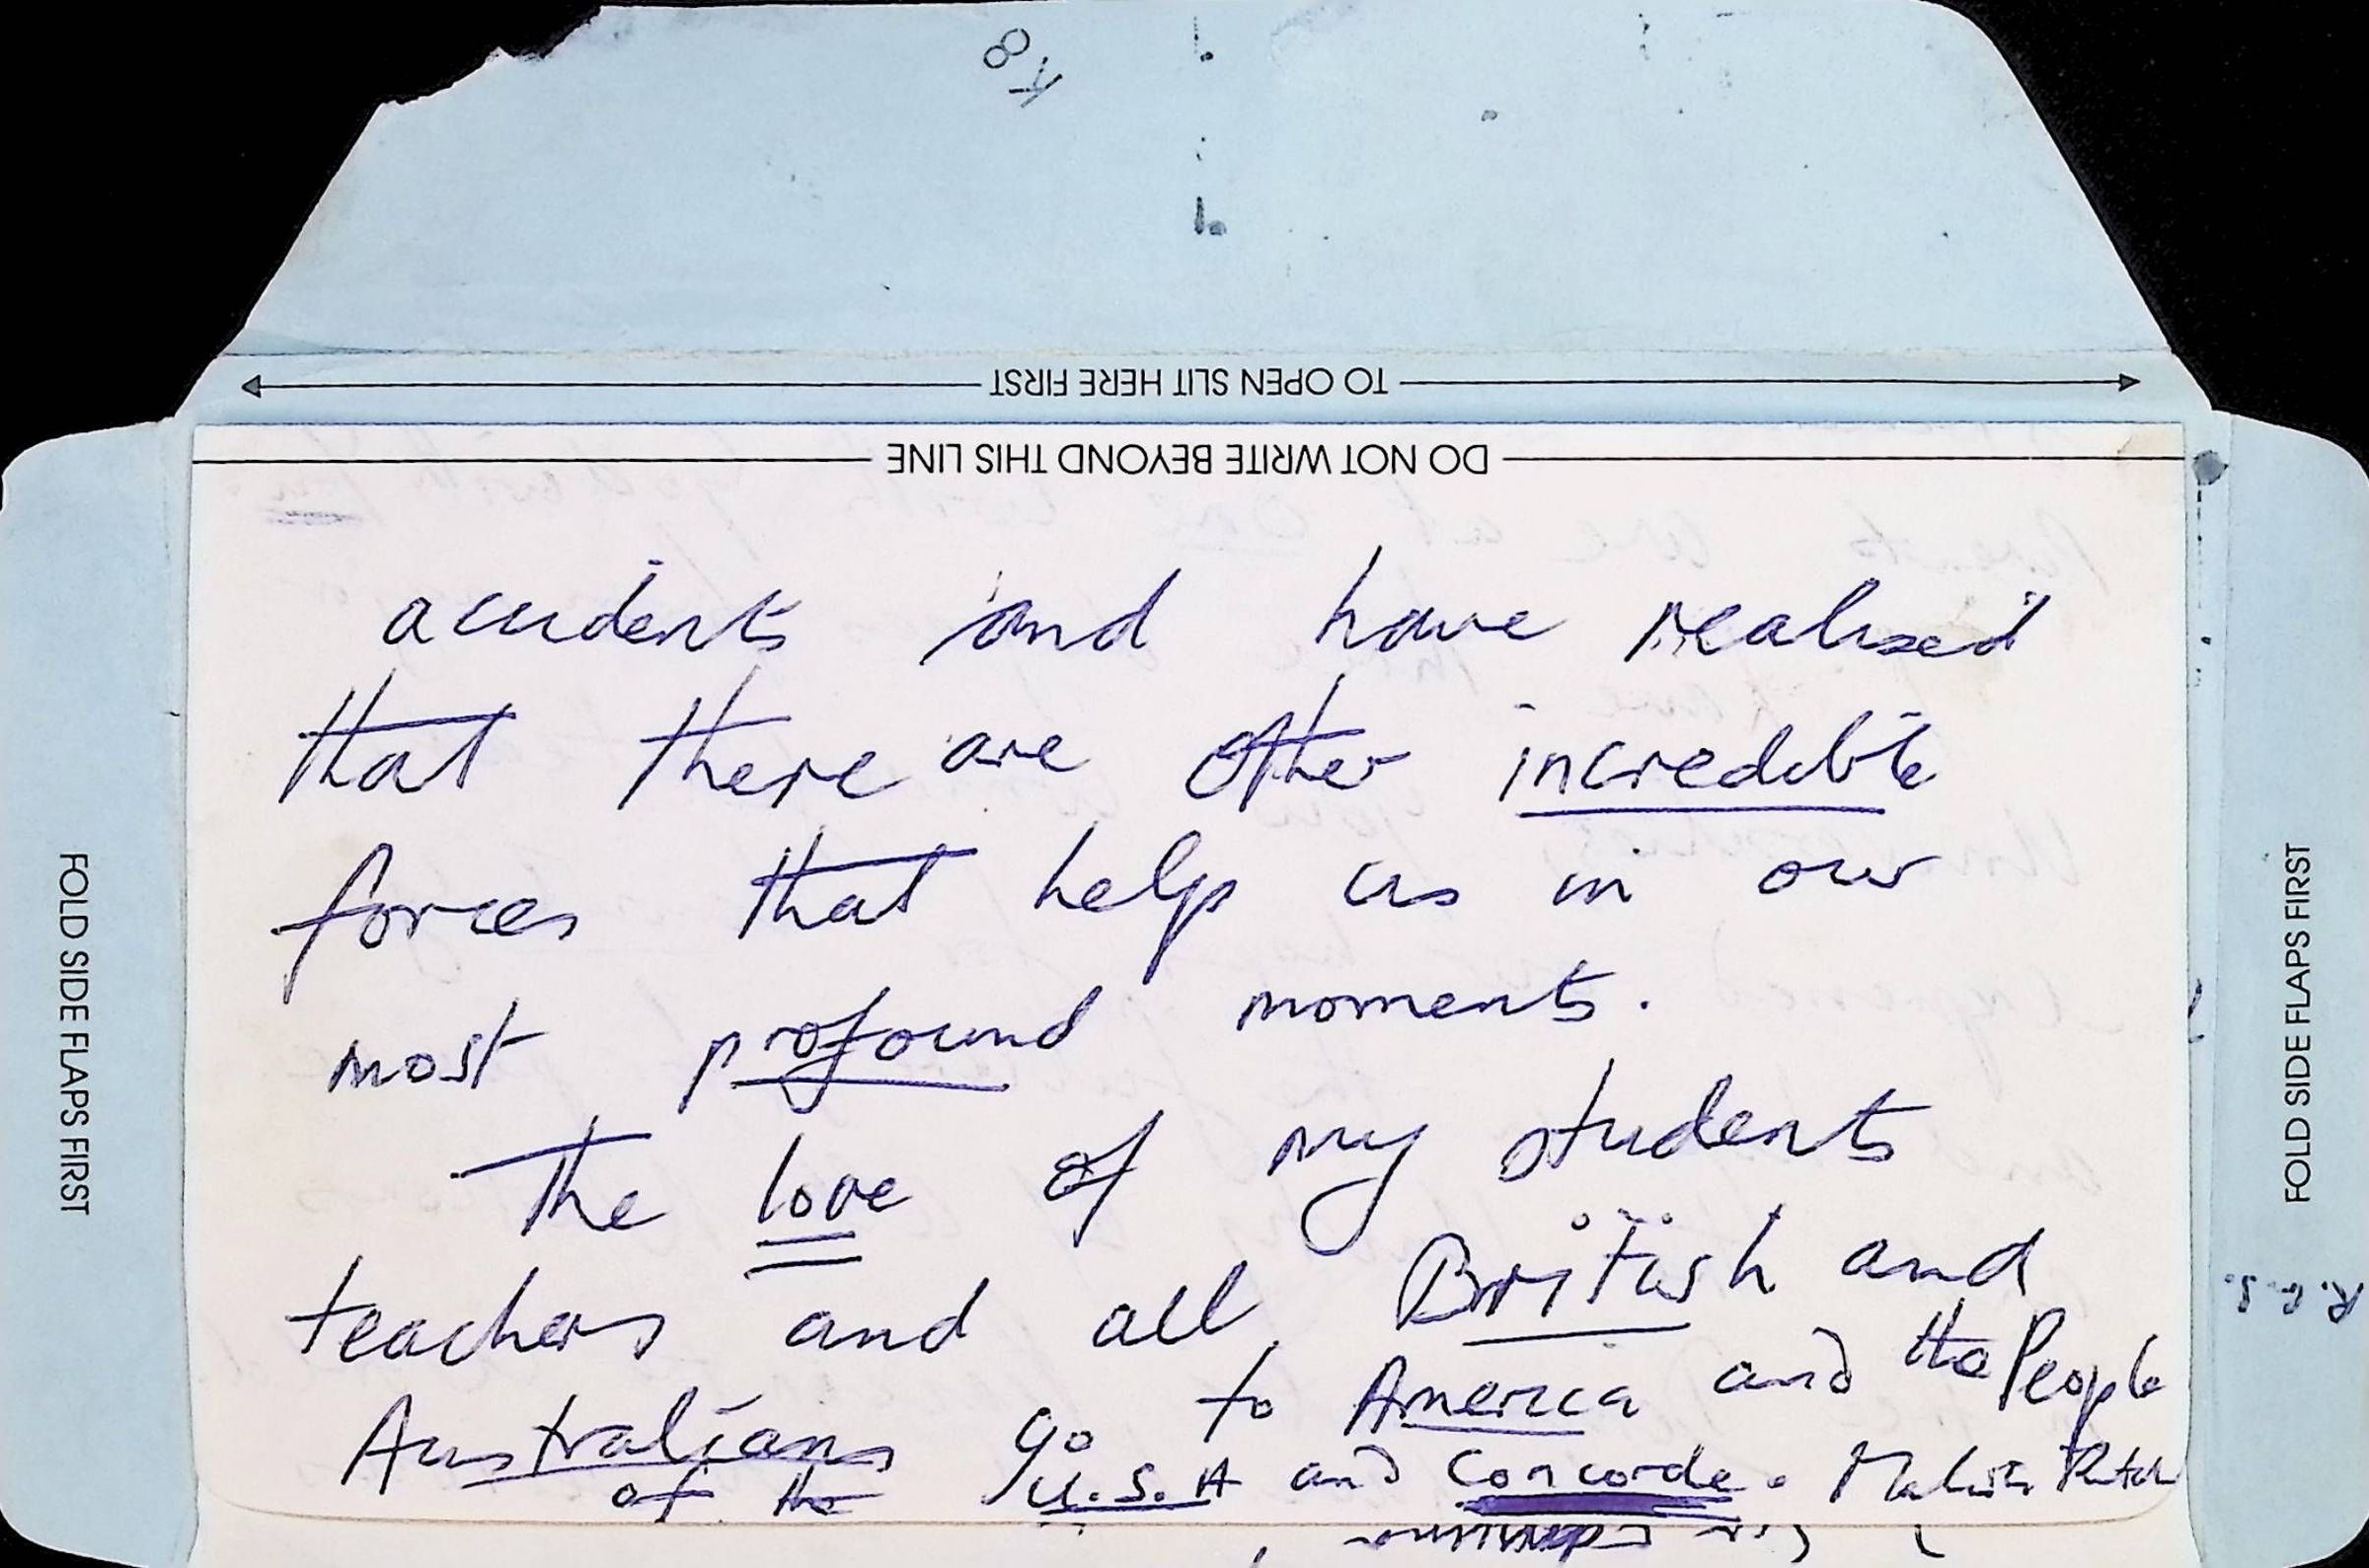 K8
TO OPEN SLIT HERE FIRST
DO NOT WRITE BEYOND THIS LINE
accidents and have realised
that there are other incredible
forces that help us in our
most profound moments.
The love of my students
teachers and all British and
Australians go to America and the People
of the U.S.A and Concorde.
FOLD SIDE FLAPS FIRST
FOLD SIDE FLAPS FIRST